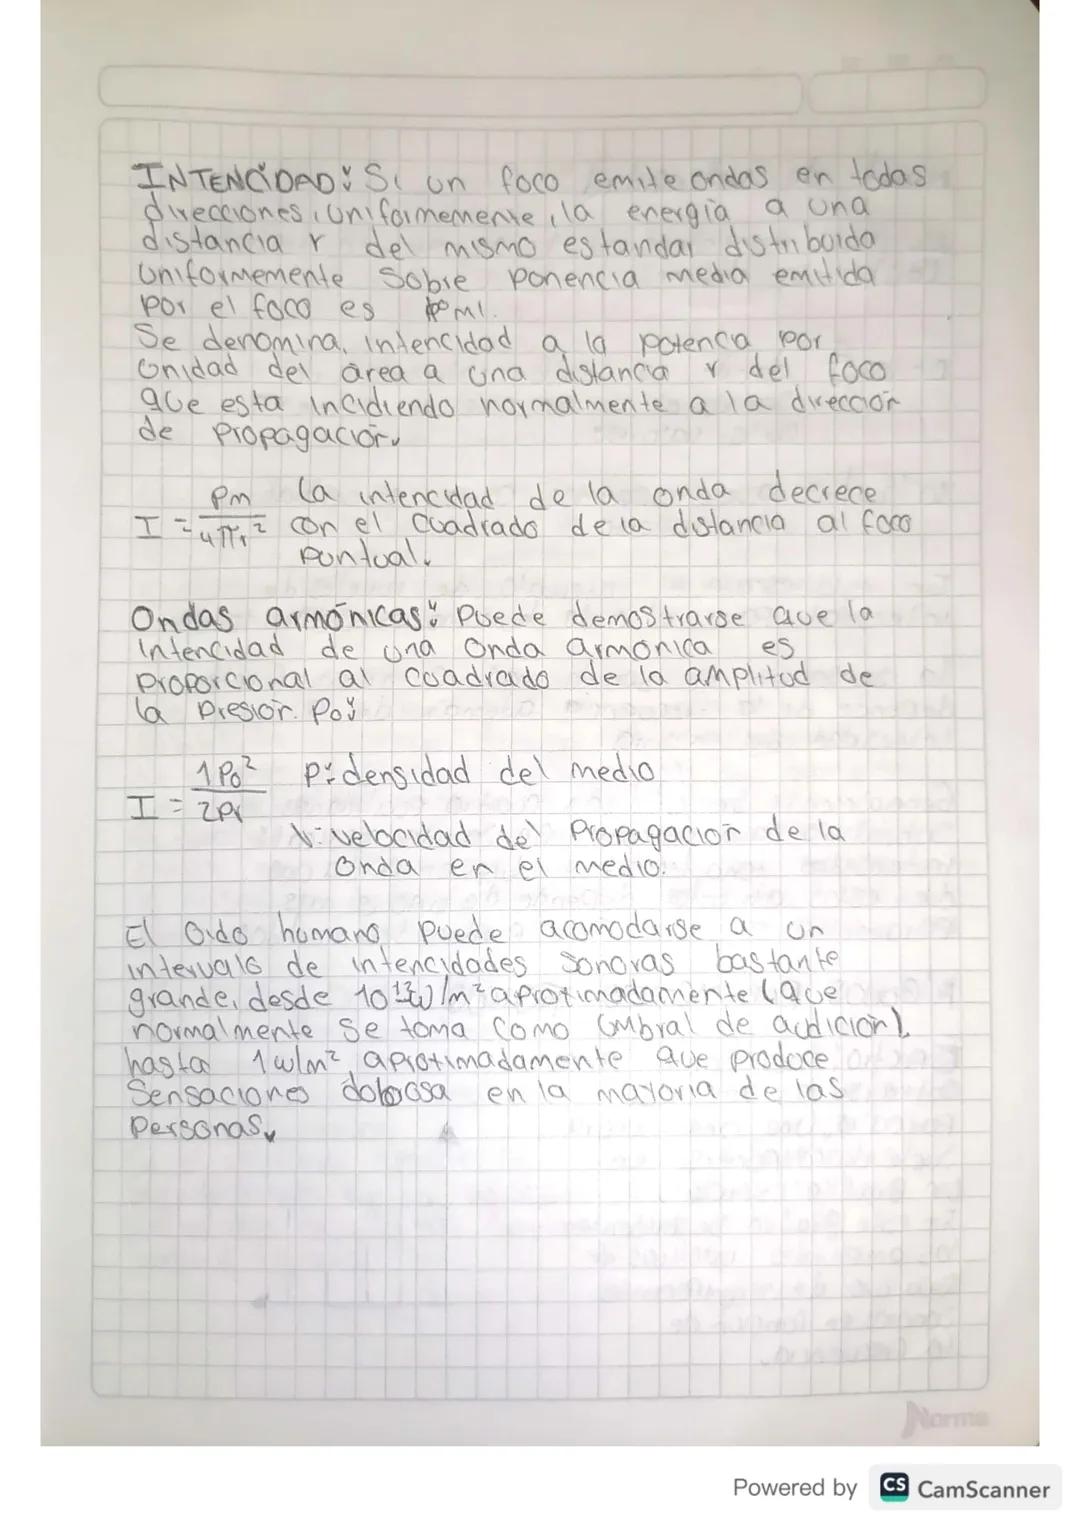 INTENCIDAD: Si un foco emite ondas en todas
direcciones, uniformemente, la energía a una
distancia r del mismo estandar distribuida
uniformemente sobre ponencia media emitida
por el foco es
Se denomina, intencidad a la potenca por
unidad del area a una distancia r del foco
que esta incidiendo normalmente a la dirección
de propagación.
I = Pm / 4πr² La intencidad de la onda decrece
con el cuadrado de la distancia al foco
puntual.
Ondas armónicas: Puede demostrarse que la
intencidad de una onda armonica es
proporcional al cuadrado de la amplitud de
la presión Po:
I = 1Po² / 2Pv P: densidad del medio
V: velocidad del propagación de la
onda en el medio.
El oido humano puede acomodarse a un
intervalo de intencidades sonoras bastante
grande, desde 10⁻¹²W/m² aprotimadamente (que
normalmente se toma como umbral de audición),
hasta 1w/m² aprotimadamente que produce
sensaciones dolorosa en la mayoria de las
personas.
Norma
Powered by CS CamScanner